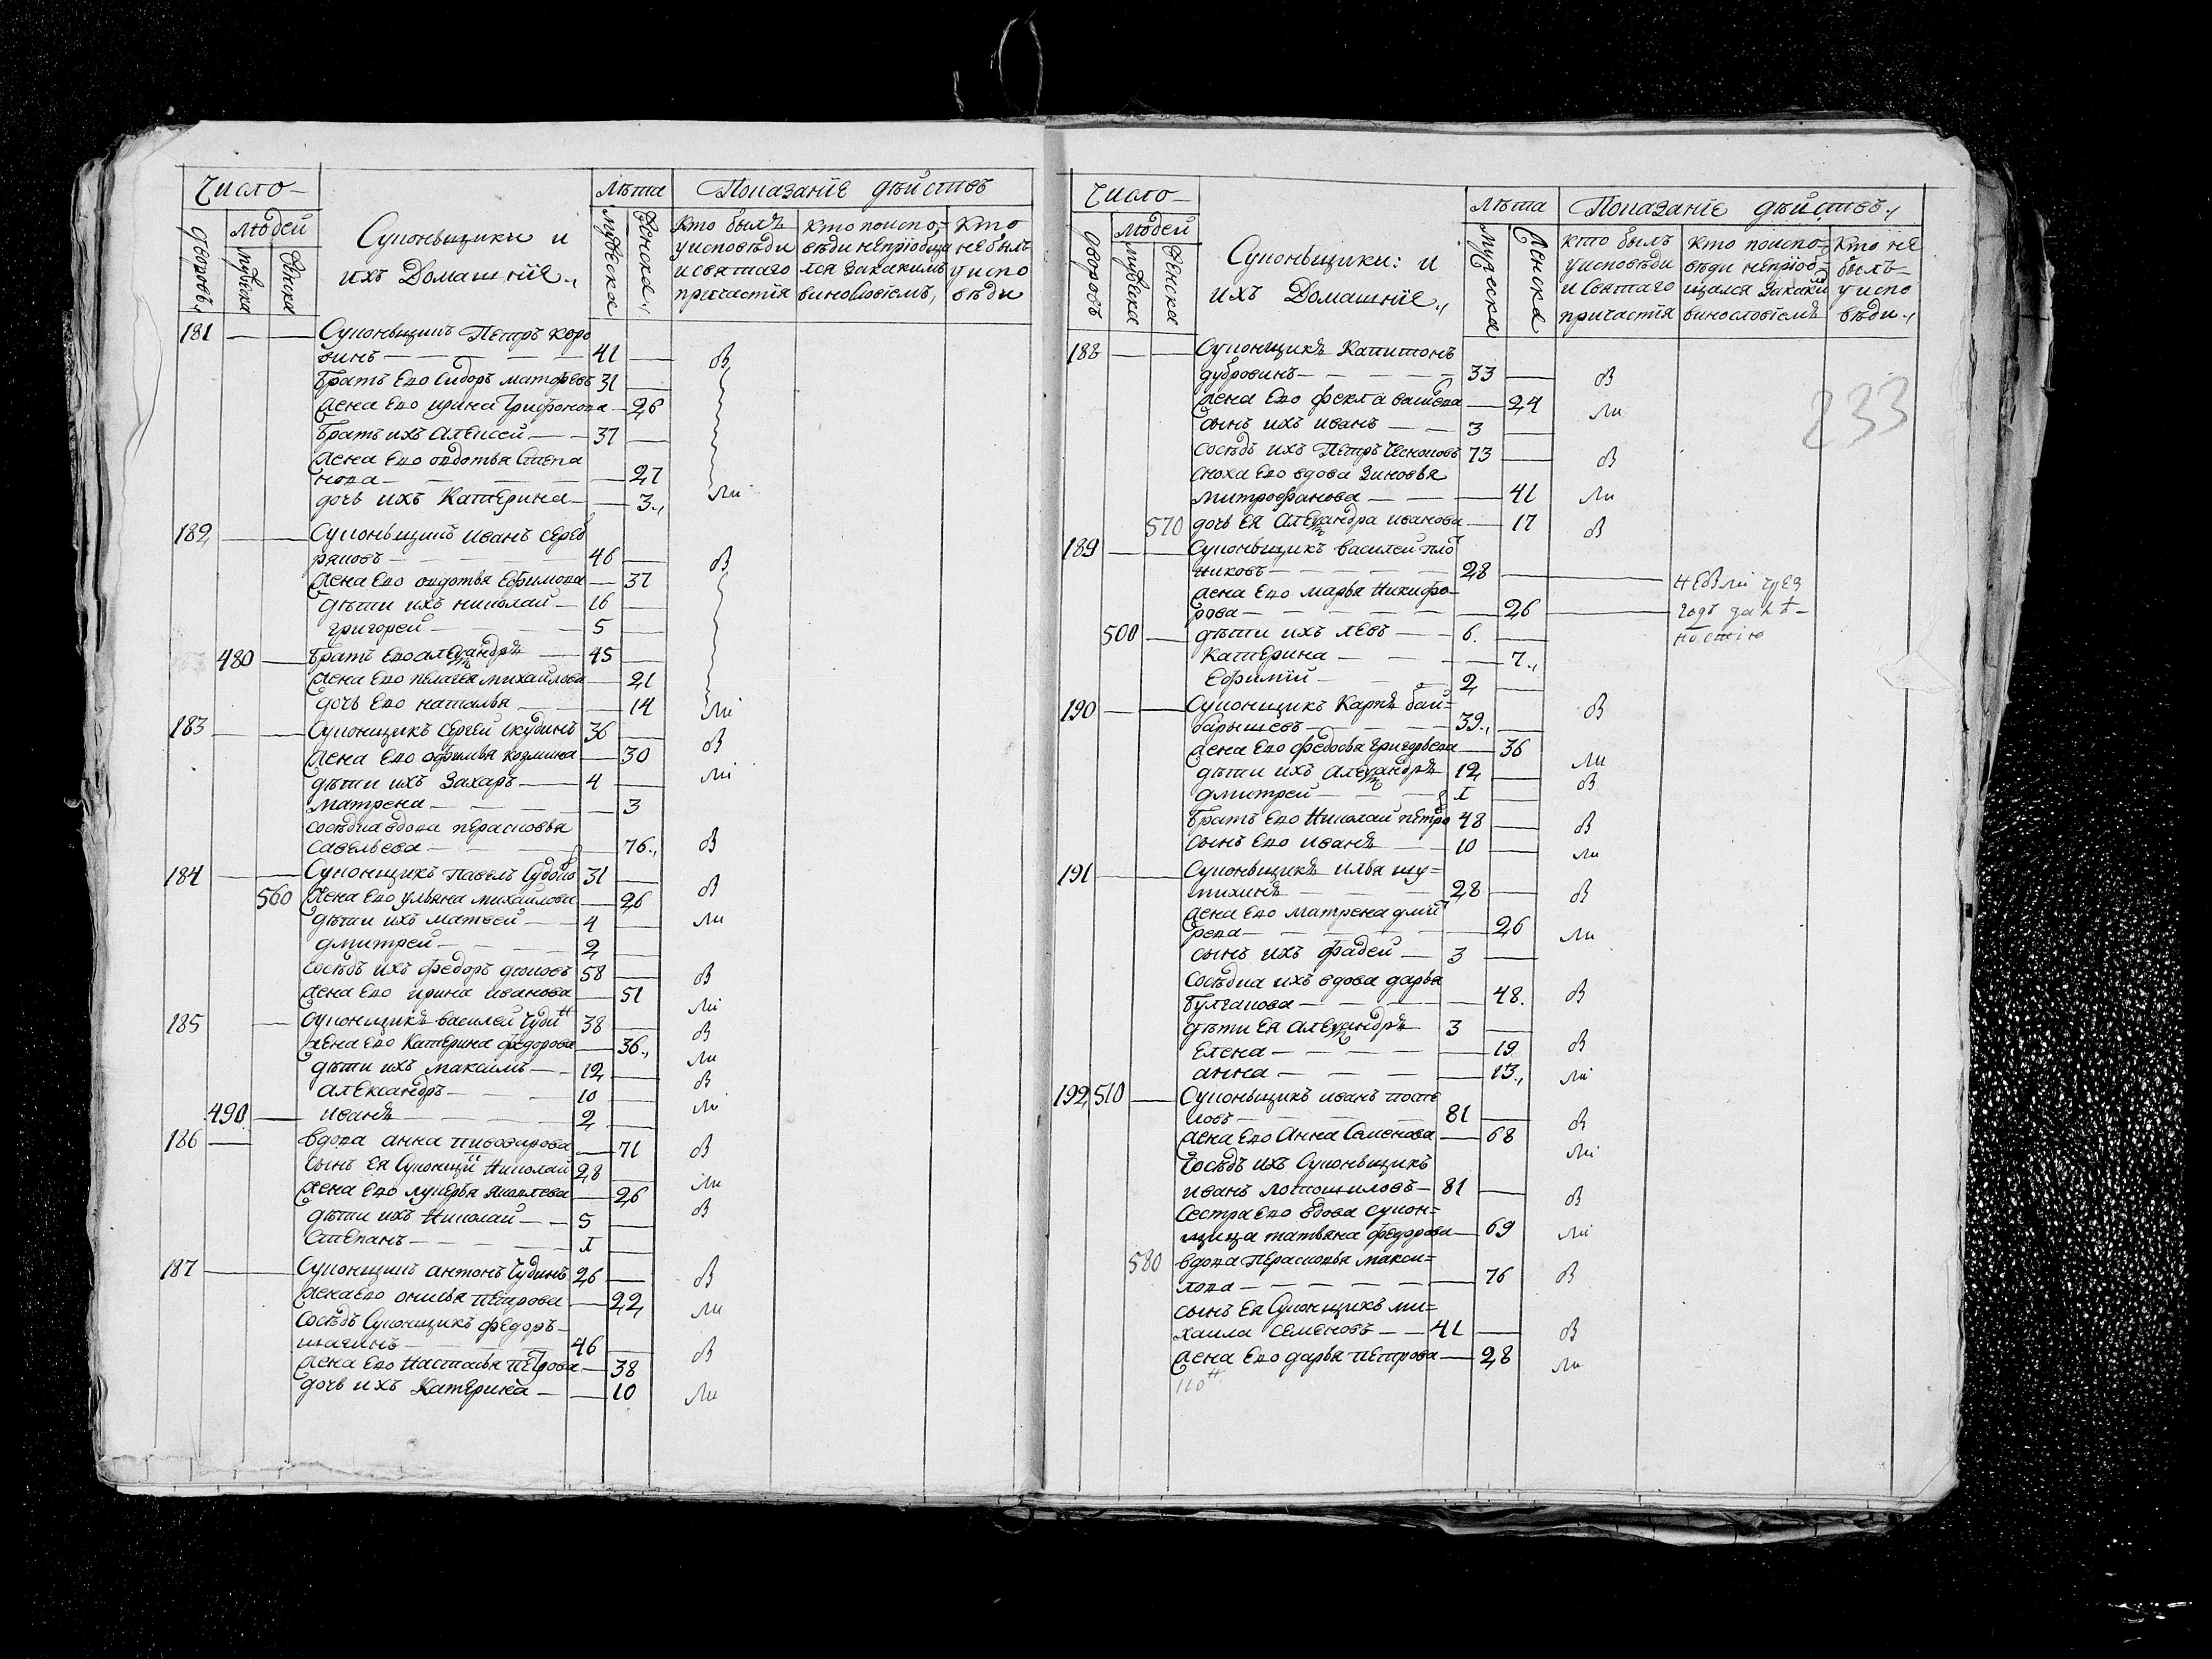 Число
Людей
Дворовъ
мужеска
Женска
Суконьщики и
ихъ Домашніе
Лѣта
мужеска
Женска
Показаніе дѣйствъ
кто былъ
у исповѣди
и святаго
причастія
кто по испо-
вѣди непріобщи
лся за какимъ
винословіемъ
кто
не былъ
у испо
вѣди
181 Суконьщикъ Петръ коро
винъ 41 В
братъ Ево Сидоръ матфѣевъ 31
Жена Ево ирина Трифонова 26
братъ ихъ Алексей 37
Жена Ево овдотья Степа
нова 27
дочь ихъ Катерина 3 Ли
182 Суконьщикъ Иванъ Сереб
ряковъ 46 В
Жена Ево овдотья Ефимова 37
дѣти ихъ николай 16
григорей 5
480 братъ Ево александръ 45
Жена Ево пелагея михайлова 21
дочь Ево наталья 14 Ли
183 Суконщикъ Сергей Скудинъ 36 В
Жена Ево офимья козмина 30
дѣти ихъ Захаръ 4 Ли
матрена 3
сосѣдка вдова перасковья
савельева 76 В
184 Суконщикъ павелъ 31
560 Жена Ево ульяна михайлова 26 В
дѣти ихъ матвей 4 Ли
дмитрей 2
сосѣдъ ихъ федоръ 58 В
Жена Ево ирина иванова 51 Ли
185 Суконщикъ василей Чудин 38 В
Жена Ево Катерина федорова 36 Ли
дѣти ихъ максимъ 12 В
Александръ 10 Ли
490 иванъ 2
186 вдова анна пивоварова 71 В
сынъ ея Суконщи николай 28
Жена Ево лукерья яковлева 26 Ли
дѣти ихъ николай 5 В
Степанъ 1
187 Суконщикъ антонъ Чудинъ 26 В
Жена Ево онисья петрова 22 Ли
сосѣдъ Суконщикъ федоръ
шагинъ 46
Жена Ево настасья петрова 38 В
дочь ихъ Катерина 10 Ли
Число
Людей
Дворовъ
мужеска
Женска
Суконьщики: и
ихъ Домашніе
Лѣта
мужеска
Женска
Показаніе дѣйствъ
кто былъ
у исповѣди
и святаго
причастія
кто по испо-
вѣди непріоб-
щался за каким
винословіемъ
кто не
былъ
у испо
вѣди
233
188 Суконщикъ Капитонъ
дубровинъ 33 В
Жена Ево фекла 24 Ли
сынъ ихъ иванъ 3
сосѣдъ ихъ Петръ 73 В
сноха Ево вдова Зиновья
митрофанова 41 Ли
570 дочь Ея Александра иванова 17 В
189 Суконьщикъ василей плот
никовъ 28
Жена Ево марья никифо-
рова 26
500 дѣти ихъ левъ 6
Катерина 7
Ефимій 2
190 Суконщикъ Карпъ бай=
барышевъ 39 В
Жена Ево федосья григорьева 36 Ли
дѣти ихъ Александръ 12 В
дмитрей 1
братъ Ево николай петро 48 В
сынъ Ево иванъ 10 Ли
191 Суконьщикъ илья шу=
тихинъ 28 В
Жена Ево матрена дмит
рева 26 Ли
сынъ ихъ фадей 3
сосѣдка ихъ вдова дарья
булгакова 48 В
дѣти Ея Александръ 3
Елена 19 В
анна 13 Ли
192 510 Суконьщикъ иванъ
81 В
Жена Ево Анна Семенова 68 Ли
Сосѣдъ ихъ Суконьщикъ
иванъ 81 В
Сестра Ево вдова сукон=
щица татьяна федорова 69 Ли
580 вдова Перасковья макси=
мова 76 В
сынъ Ея Суконщикъ ми=
хаила семеновъ 41 В
Жена Ево дарья петрова 28 Ли